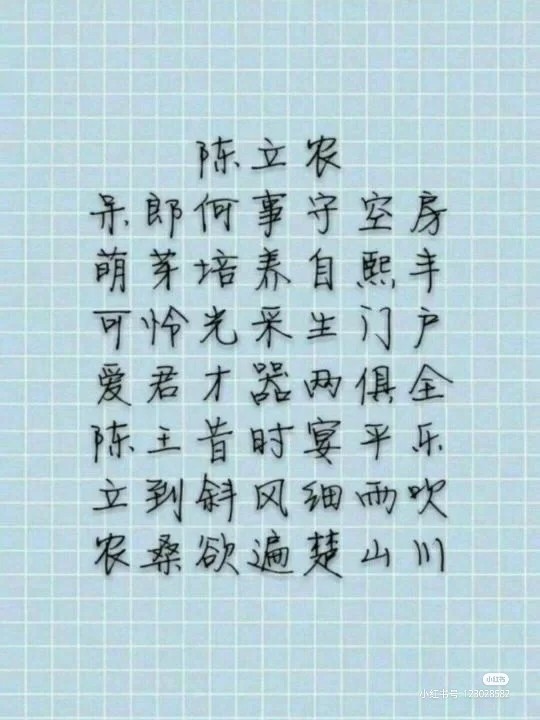 陈立农
呆郎何事守空房
萌芽培养自熙丰
可怜光采生门户
爱君才器两俱全
陈王昔时宴平乐
立到斜风细雨吹
农桑欲遍楚山川
小红书
小红书号 123028582